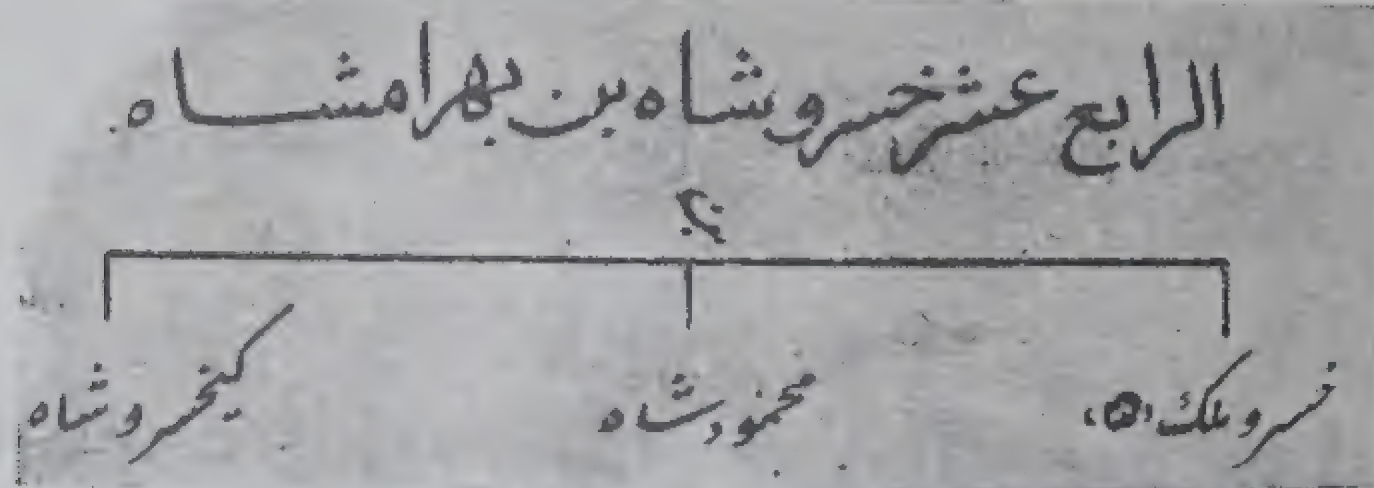 الرابع عشر خسرو شاه بن بهرامشاه.
خسرو ملك (۵) محمود شاه كيخسرو شاه